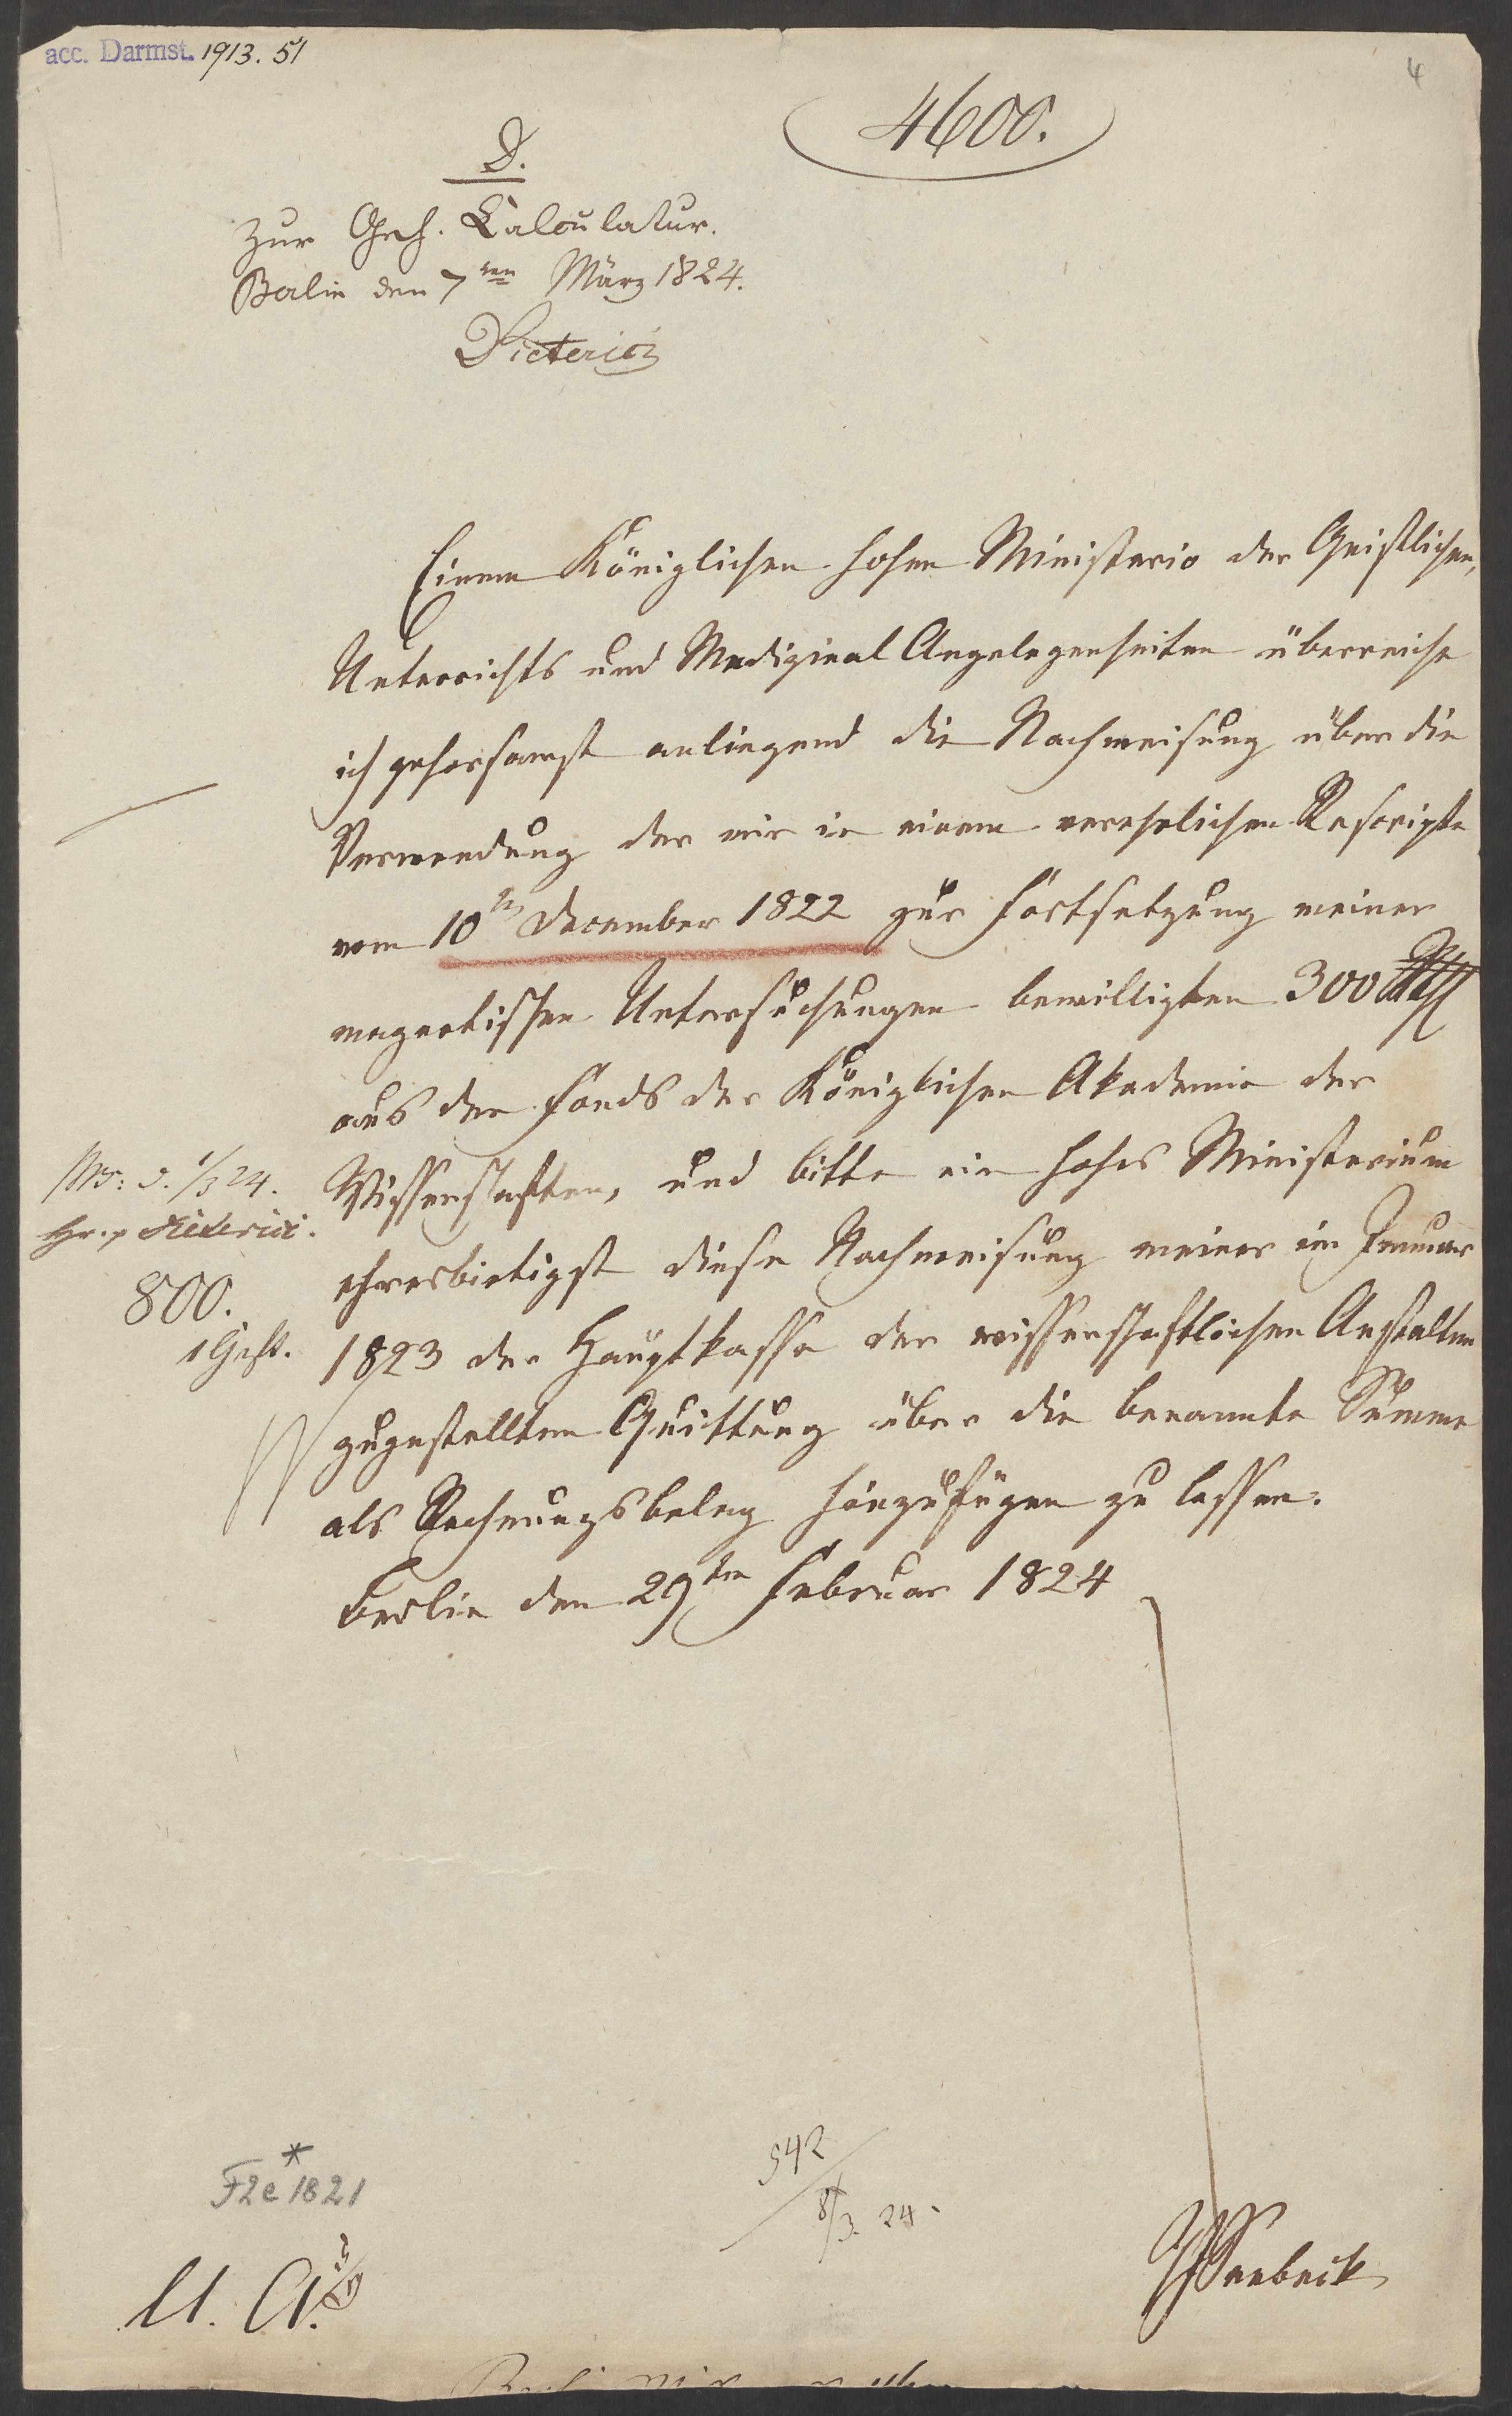 acc. Darmst. 1913. 51
4
4600.
D.
Zur Geh. Calculatur.
Berlin den 7ten März 1824.
Dieterici
Einem Königlichen hohen Ministerio der Geistlichen,
Unterrichts und Medizinal Angelegenheiten überreiche
ich gehorsamst anliegend die Nachweisung über die
Verwendung der mir in einem verehrlichen Rescripte
vom 10ten December 1822 zur Fortsetzung meiner
magnetischen Untersuchungen bewilligten 300
aus den Fonds der Königlichen Akademie der
Wissenschaften, und bitte ein hohes Ministerium
ehrerbietigst diese Nachweisung meiner im Januar
1823 der Hauptkasse der wissenschaftlichen Anstalten
zugestellten Quittung über die benannte Summe
als Rechnungsbeleg hinzufügen zu lassen.
Berlin den 29ten Februar 1824
1/3 24.
Hr. Dieterici.
800.
1 Heft.
F2e 1821
*
542
8/3. 24.
U. A.
Seebeck